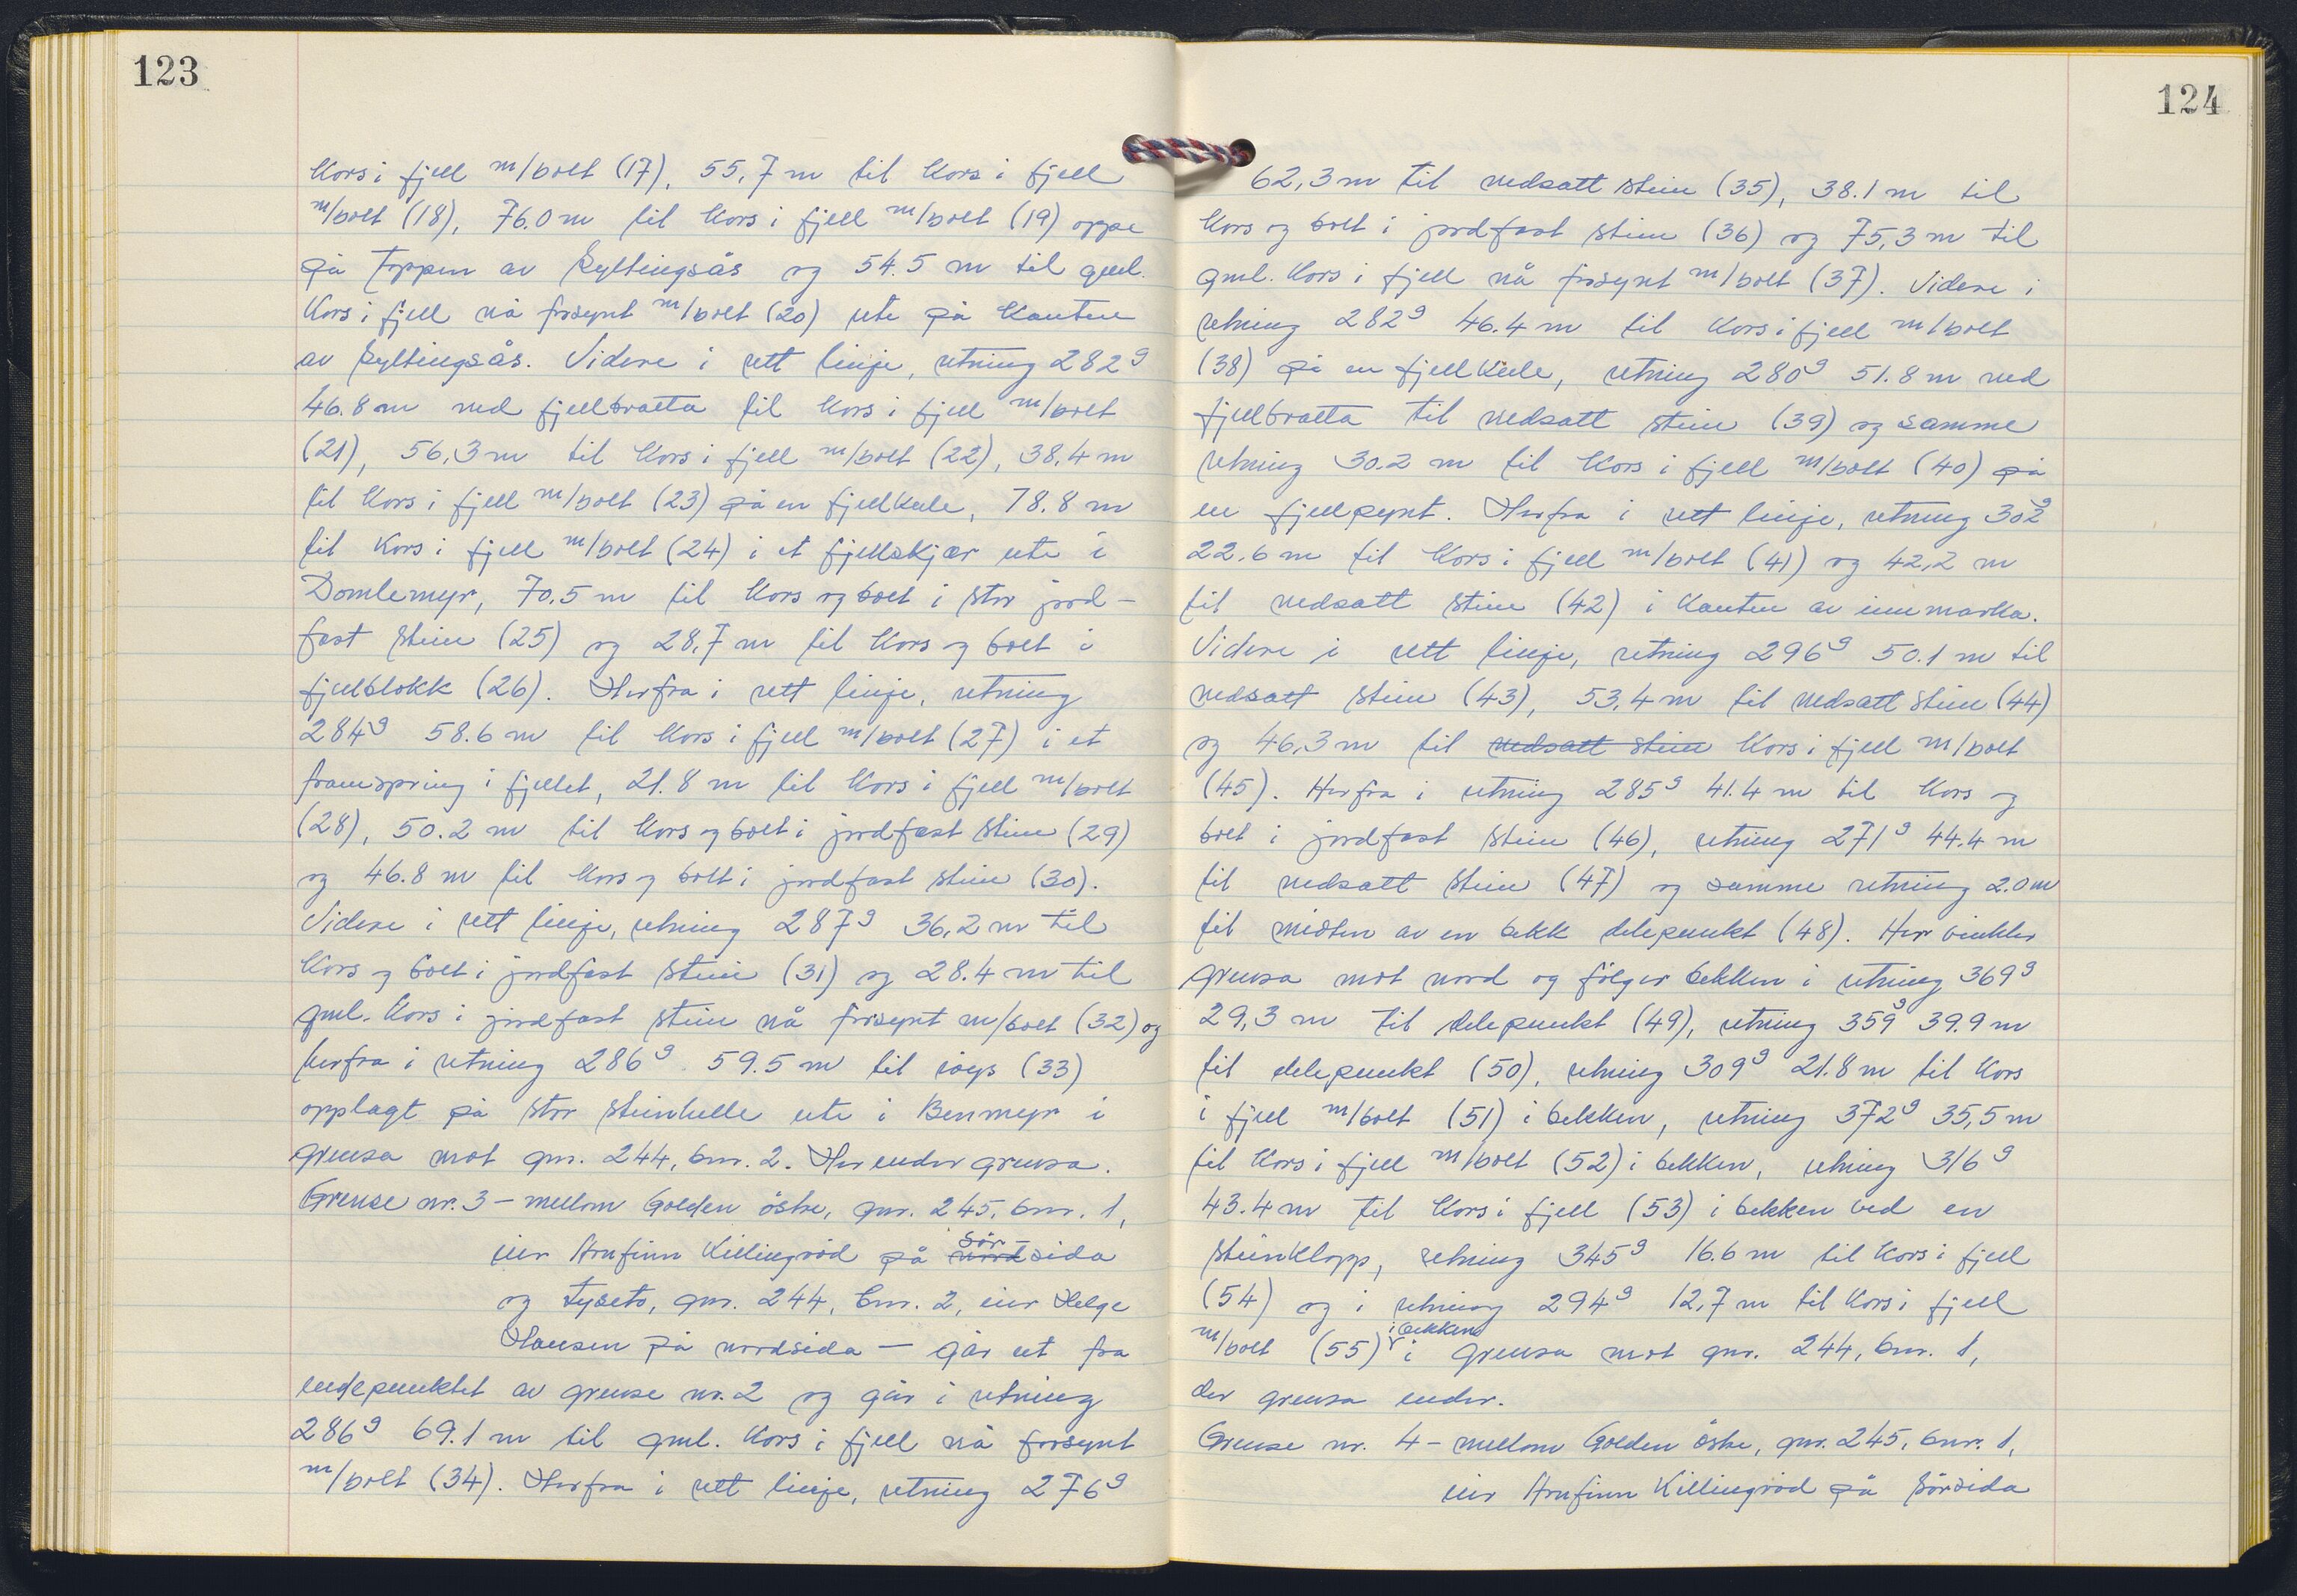 123
Kors i fjell m/bolt (17), 55,7 m til Kors i fjell
m/bolt (18), 76.0 m til Kors i fjell m/bolt (19) oppe
på toppen av Ryltingsås og 54.5 m til gml.
Kors i fjell nå forsynt m/bolt (20) ute på Kanten
av Ryltingsås. Videre i rett linje, retning 282g
46.8 m ned fjellbratta til Kors i fjell m/bolt
(21), 56,3 m til Kors i fjell m/bolt (22), 38,4 m
til Kors i fjell m/bolt (23) på en fjellkule, 78.8 m
til Kors i fjell m/bolt (24) i et fjellskjær ute i
Domlemyr, 70.5 m til Kors og bolt i stor jord-
fast stein (25) og 28,7 m til Kors og bolt i
fjellblokk (26). Herfra i rett linje, retning
284g 58.6 m til Kors i fjell m/bolt (27) i et
framspring i fjellet, 21.8 m til Kors i fjell m/bolt
(28), 50.2 m til Kors og bolt i jordfast stein (29)
og 46.8 m til Kors og bolt i jordfast stein (30).
Videre i rett linje, retning 287g 36,2 m til
Kors og bolt i jordfast stein (31) og 28.4 m til
gml. Kors i jordfast stein nå forsynt m/bolt (32) og
herfra i retning 286g 59.5 m til røys (33)
opplagt på stor steinhelle ute i Benmyr i
grensa mot gnr. 244, bnr. 2. Her ender grensa.
Grense nr. 3 - mellom Golden östre, gnr. 245, bnr. 1,
eier Arnfinn Killingröd på nord sör-sida
og Tyseto, gnr. 244, bnr. 2, eier Helge
Hansen på nordsida - går ut fra
endepunktet av grense nr. 2 og går i retning
286g 69.1 m til gml. Kors i fjell nå forsynt
m/bolt (34). Herfra i rett linje, retning 276g
124
62,3 m til nedsatt stein (35), 38.1 m til
Kors og bolt i jordfast stein (36) og 75,3 m til
gml. Kors i fjell nå forsynt m/bolt (37). Videre i
retning 282g 46.4 m til Kors i fjell m/bolt
(38) på en fjellkule, retning 280g 51.8 m ned
fjellbratta til nedsatt stein (39) og samme
retning 30.2 m til Kors i fjell m/bolt (40) på
en fjellpynt. Herfra i rett linje, retning 302g
22.6 m til Kors i fjell m/bolt (41) og 42,2 m
til nedsatt stein (42) i Kanten av innmarka.
Videre i rett linje, retning 296g 50.1 m til
nedsatt stein (43), 53,4 m til nedsatt stein (44)
og 46,3 m til nedsatt stein Kors i fjell m/bolt
(45). Herfra i retning 285g 41.4 m til Kors og
bolt i jordfast stein (46), retning 271g 44.4 m
til nedsatt stein (47) og samme retning 2.0 m
til midten av en bekk delepunkt (48). Her vinkler
grensa mot nord og fölger bekken i retning 369g
29,3 m til delepunkt (49), retning 359g 39.9 m
til delepunkt (50), retning 309g 21.8 m til Kors
i fjell m/bolt (51) i bekken, retning 372g 35,5 m
til Kors i fjell m/bolt (52) i bekken, retning 316g
43.4 m til Kors i fjell (53) i bekken ved en
steinklopp, retning 345g 16.6 m til Kors i fjell
(54) og i retning 294g 12,7 m til Kors i fjell
m/bolt (55) i bekken i grensa mot gnr. 244, bnr. 1,
der grensa ender.
Grense nr. 4 - mellom Golden östre, gnr. 245, bnr. 1,
eier Arnfinn Killingröd på sörsida